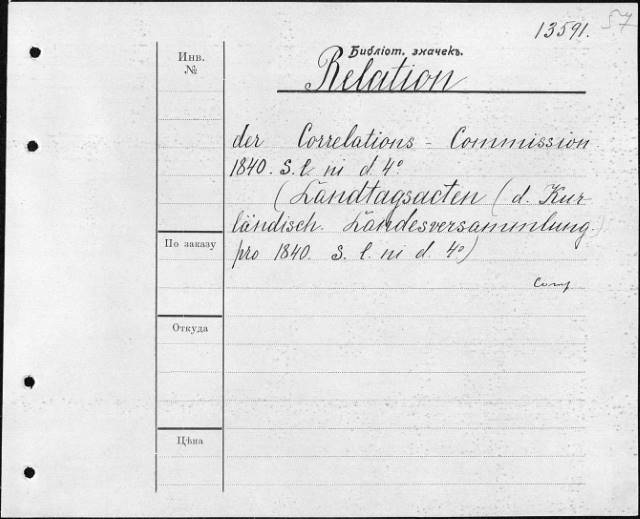 13591. 57
Инв.
№
Библіот. значекъ.
Relation
der Correlations - Commission
1840. S. l. ni d. 4°
(Landtagsacten (d. Kur-
ländisch. Landesversammlung.)
pro 1840. S. l. ni d. 4°)
По заказу
Comp
Откуда
Цѣна